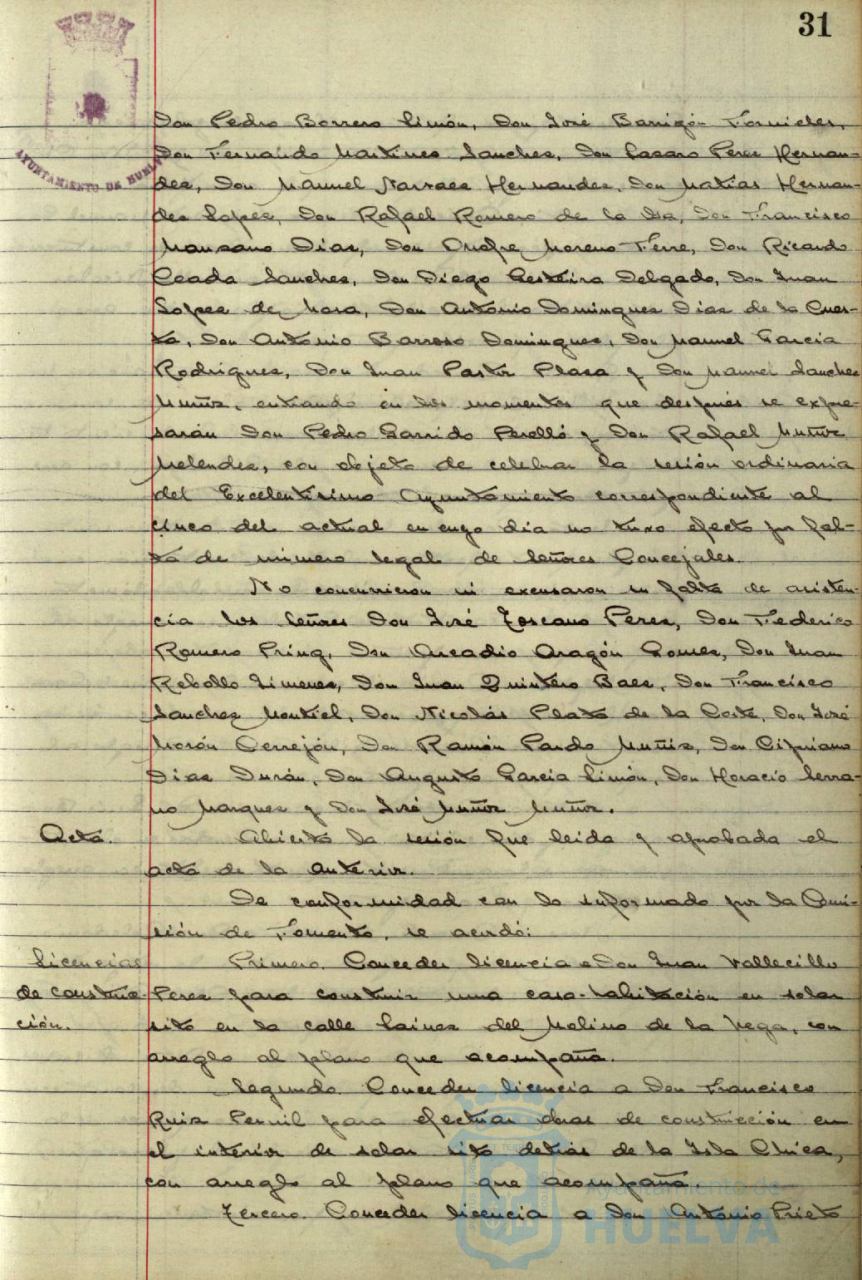 31
AYUNTAMIENTO DE HUELVA
Don Pedro Borrero Limón, Don José Barrigón Fornieles,
Don Fernando Martinez Sanchez, Don Lazaro Perez Hernan-
dez, Don Manuel Narvaez Hernandez, Don Matías Hernan-
dez Lopez, Don Rafael Romero de la Isa, Don Francisco
Manzano Diaz, Don Onofre Moreno Ferre, Don Ricardo
Ceada Sanchez, Don Diego Gesteira Delgado, Don Juan
Lopez de Mora, Don Antonio Dominguez Diaz de la Cues-
ta, Don Antonio Barroso Dominguez, Don Manuel Garcia
Rodriguez, Don Juan Pastor Plaza y Don Manuel Sanchez
Muñiz, entrando en los momentos que después se expre-
sarán Don Pedro Garrido Perelló y Don Rafael Muñoz
Melendez, con objeto de celebrar la sesión ordinaria
del Excelentisimo Ayuntamiento correspondiente al
cinco del actual en cuyo dia no tuvo efecto por fal-
ta de número legal de Señores Concejales.
No concurrieron ni excusaron su falta de asisten-
cia los Señores Don José Toscano Perez, Don Federico
Romero Pring, Don Arcadio Aragón Gomez, Don Juan
Rebollo Jimenez, Don Juan Quintero Baez, Don Francisco
Sanchez Montiel, Don Nicolás Plata de la Corte, Don José
Morón Cerrejón, Don Ramón Pardo Muñiz, Don Cipriano
Diaz Durán, Don Augusto Garcia Limón, Don Horacio Serra-
no Marquez y Don José Muñoz Muñoz.
Acta.
Abierta la sesión fue leida y aprobada el
acta de la anterior.
De conformidad con lo informado por la Comi-
sión de Fomento, se acordó:
Licencias
de construc-
ción.
Primero. Conceder licencia a Don Juan Vallecillo
Perez para construir una casa-habitación en solar
sito en la calle Lainez del Molino de la Vega, con
arreglo al plano que acompaña.
Segundo. Conceder licencia a Don Francisco
Ruiz Pernil para efectuar obras de construcción en
el interior de solar sito detrás de la Isla Chica,
con arreglo al plano que acompaña.
Tercero. Conceder licencia a Don Antonio Prieto
Ayuntamiento de
HUELVA